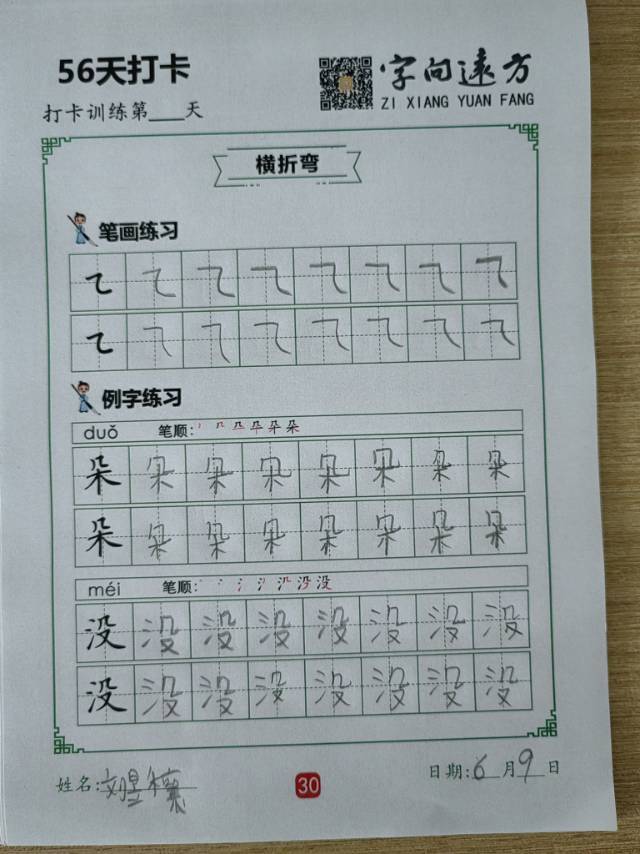 56天打卡
字向遠方
ZI XIANG YUAN FANG
打卡训练第___天
横折弯
笔画练习
㇍ ㇍ ㇍ ㇍ ㇍ ㇍ ㇍ ㇍
㇍ ㇍ ㇍ ㇍ ㇍ ㇍ ㇍ ㇍
例字练习
duǒ 笔顺:
朵 朵 朵 朵 朵 朵 朵 朵
朵 朵 朵 朵 朵 朵 朵 朵
méi 笔顺:
没 没 没 没 没 没 没 没
没 没 没 没 没 没 没 没
姓名:
30
日期:6月9日